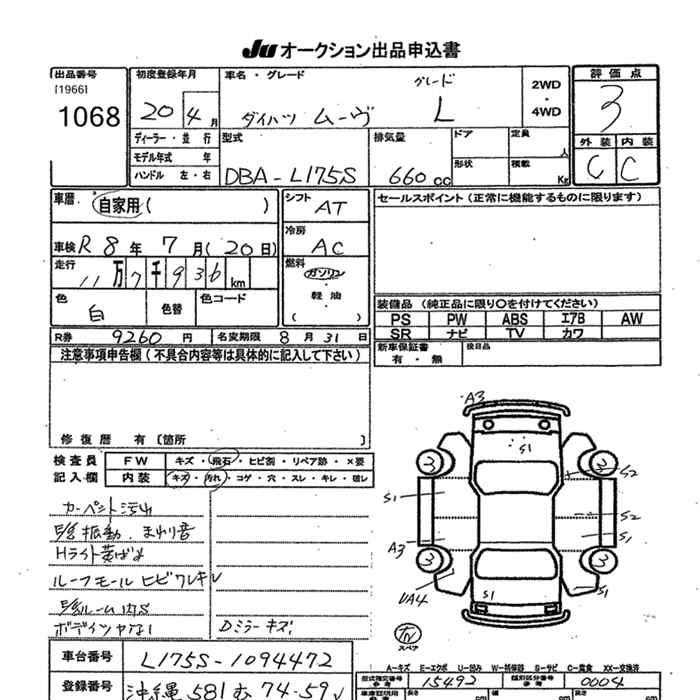 JU オークション出品申込書
出品番号 初度登録年月 車名・グレード グレード 2WD ・ 4WD 評価点
[1966] 1068 20 4月 ダイハツ ムーヴ L 3
ディーラー・並行 型式 排気量 ドア 定員 人 外装 内装
モデル年式 年 形状 積載 Kg
ハンドル 左・右 DBA-L175S 660cc C C
車歴 自家用( ) シフト AT セールスポイント(正常に機能するものに限ります)
車検 R8年7月(20日) 冷房 AC
走行 11万7千936km 燃料 ガソリン・軽油・( )
色 白 色替 色コード 装備品(純正品に限り○を付けてください)
PS PW ABS エアB AW
SR ナビ TV カワ
R券 9260円 名変期限 8月31日 新車保証書 有・無 後日品
注意事項申告欄(不具合内容等は具体的に記入して下さい)
修復歴 有〔箇所 〕
検査員 FW キズ・飛石・ヒビ割・リペア跡・×要
記入欄 内装 キズ・汚れ・コゲ・穴・スレ・キレ・破レ
カーペント汚れ
振動、まわり音
Hライト黄ばみ
ルーフモール ヒビワレキレ
ルーム内S
ボディツヤなし Dミラーキズ
A3
S1
3 3 S2
S1 S2
A3 S1
3 3
UA4 S1 S1
TV
スペア
A-キズ E-エクボ U-凹み W-補修跡 S-サビ C-腐食 XX-交換済
車台番号 L175S-1094472 型式指定番号 参考 15492 類別区分番号 参考 0004
登録番号 沖縄 581 む 74-59 長さ cm 幅 cm 高さ cm